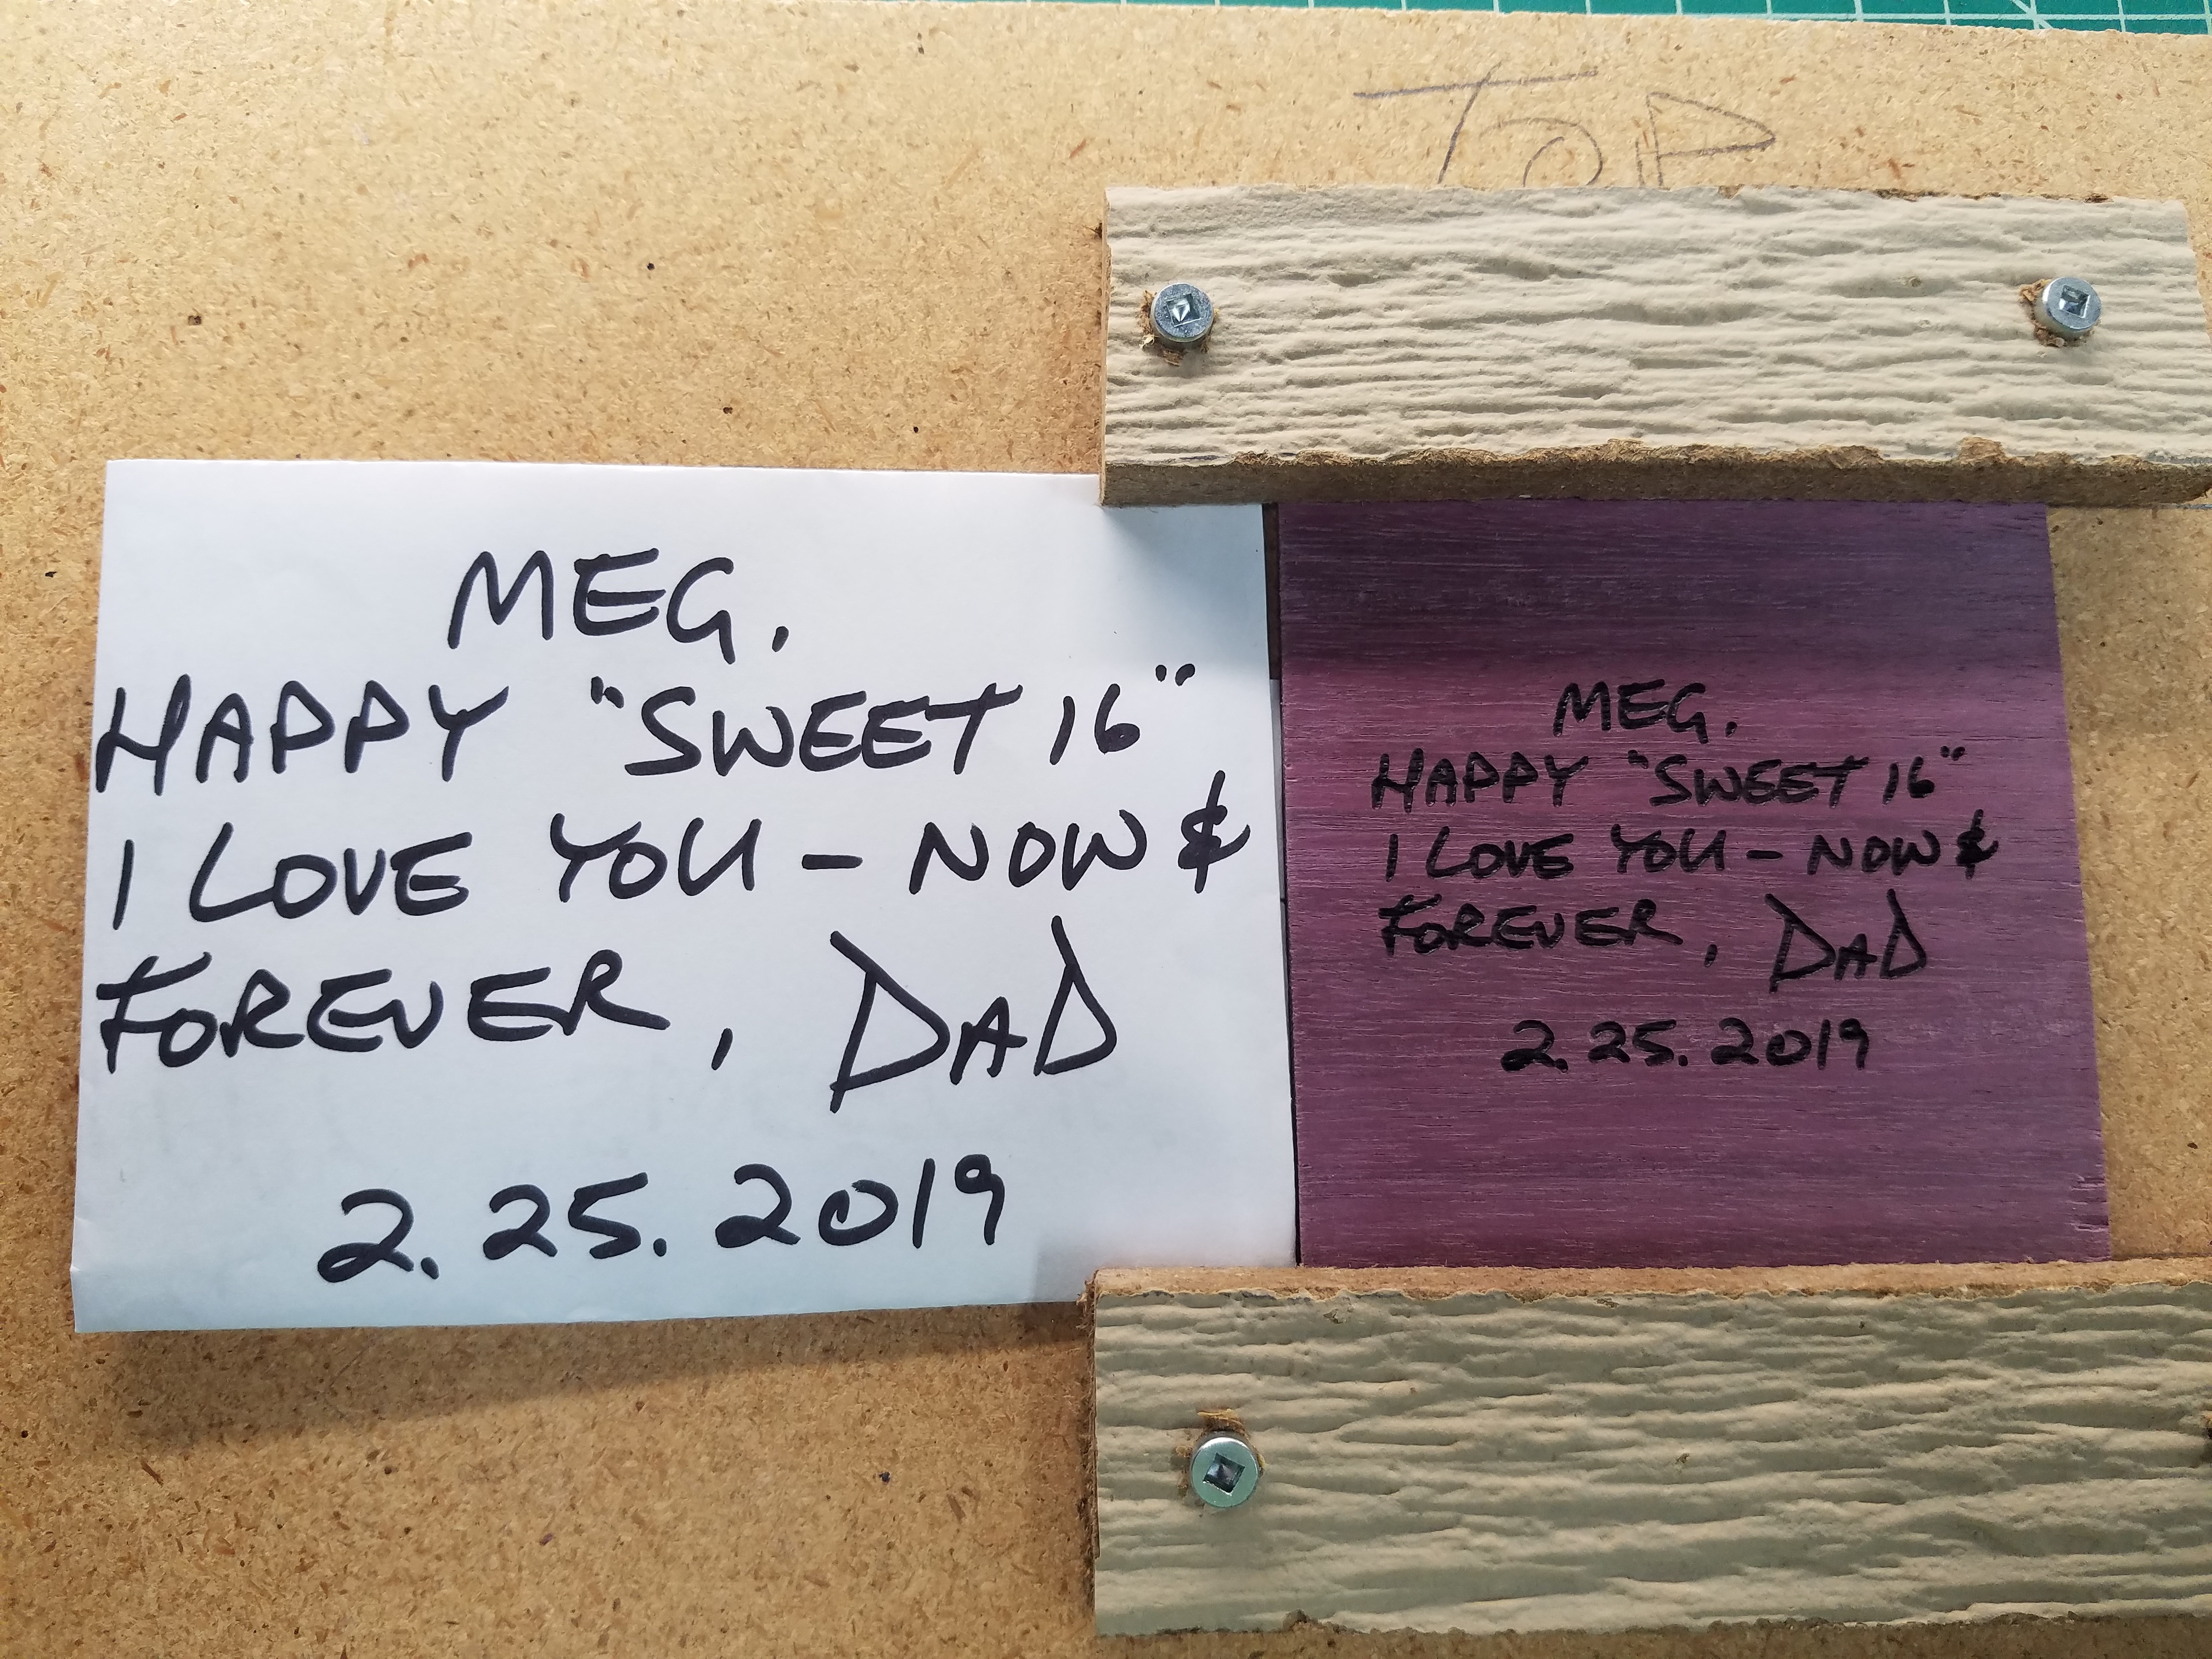 TOP
MEG.
HAPPY "SWEET 16"
I LOVE YOU - NOW &
FOREVER, DAD
2.25.2019
MEG.
HAPPY "SWEET 16"
I LOVE YOU - NOW &
FOREVER, DAD
2.25.2019